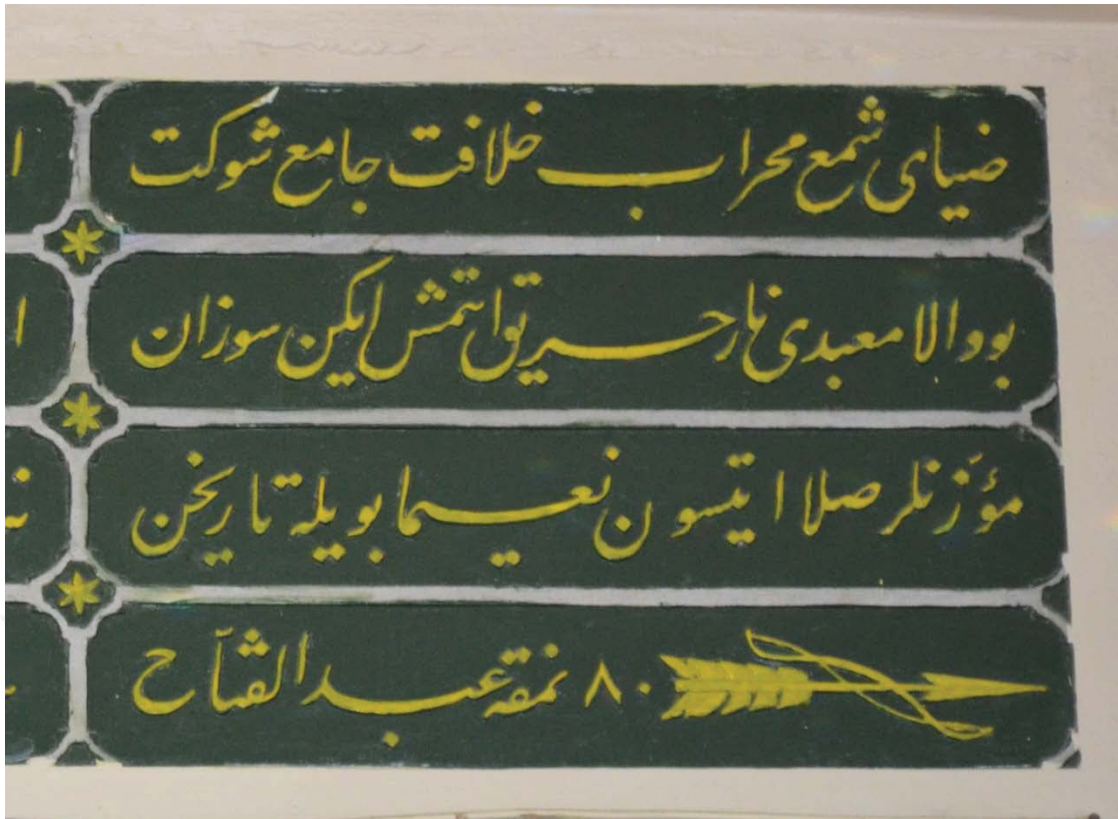 ضیای شمع محراب خلافت جامع شوکت
بو والا معبدی نار حریق ایتمش ایکن سوزان
مؤذنلر صلا ایتسون نعیما بویله تاریخن
٨٠ نمقه عبد الفتاح